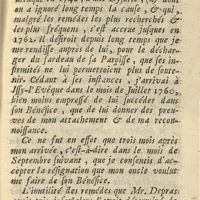 on a ignoré long temps la cause, & qui,
malgré les remédes les plus recherchés &
les plus fréquens, s'est accrue jusques en
1762. Il desiroit depuis long temps que je
me rendisse auprès de lui, pour le déchar-
ger du fardeau de sa Paroisse, que ses in-
firmités ne lui permettoient plus de soute-
nir. Cédant à ses instances, j'arrivai à
Issy-l'Evêque dans le mois de Juillet 1760,
bien moins empressé de lui succéder dans
son Bénéfice, que de lui donner des preu-
ves de mon attachement & de ma recon-
noissance.
Ce ne fut en effet que trois mois après
mon arrivée, c'est-à-dire dans le mois de
Septembre suivant, que je consentis d'ac-
cepter la résignation que mon oncle voulut
me faire de son Bénéfice.
L'inutilité des remédes que Mr. Depras